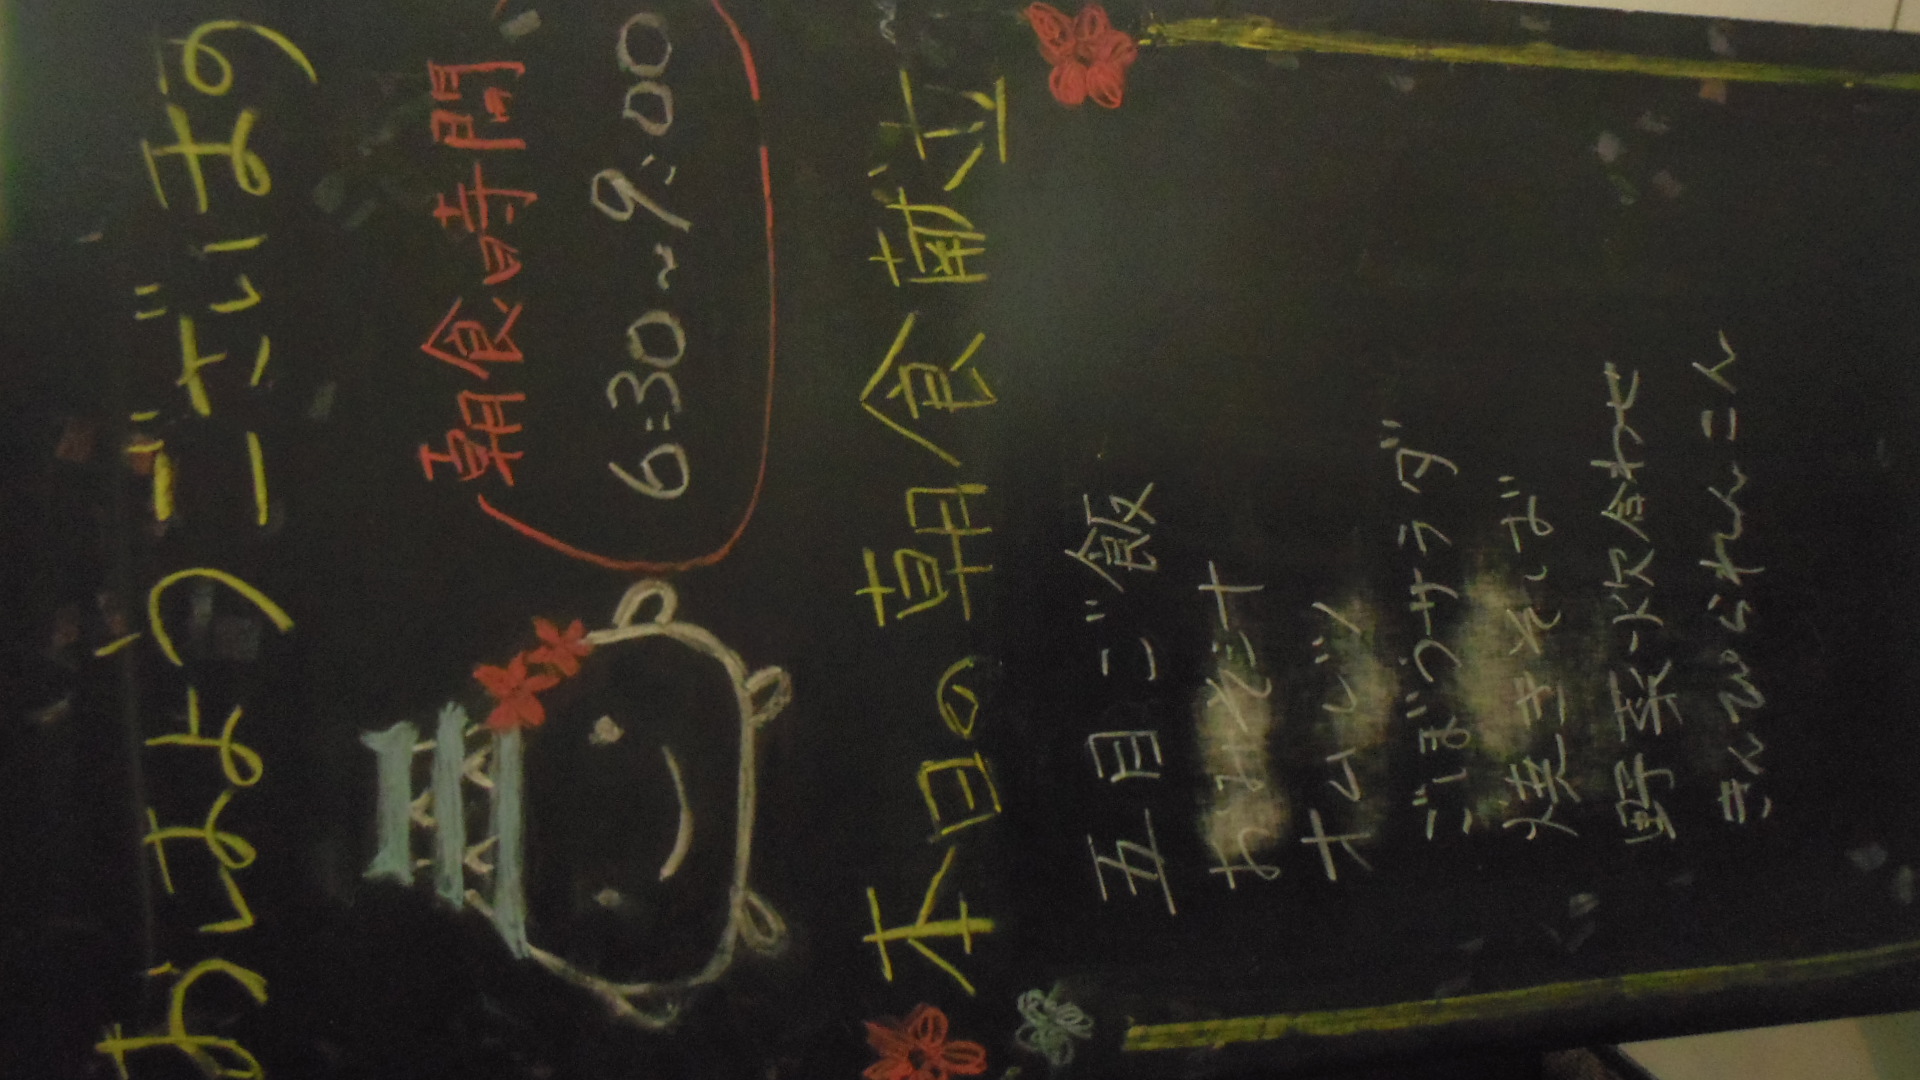 おはようございます
朝食時間
6:30~9:00
本日の朝食献立
五目ご飯
おみそ汁
オムレツ
ごぼうサラダ
焼きそば
野菜炊合わせ
きんぴられんこん